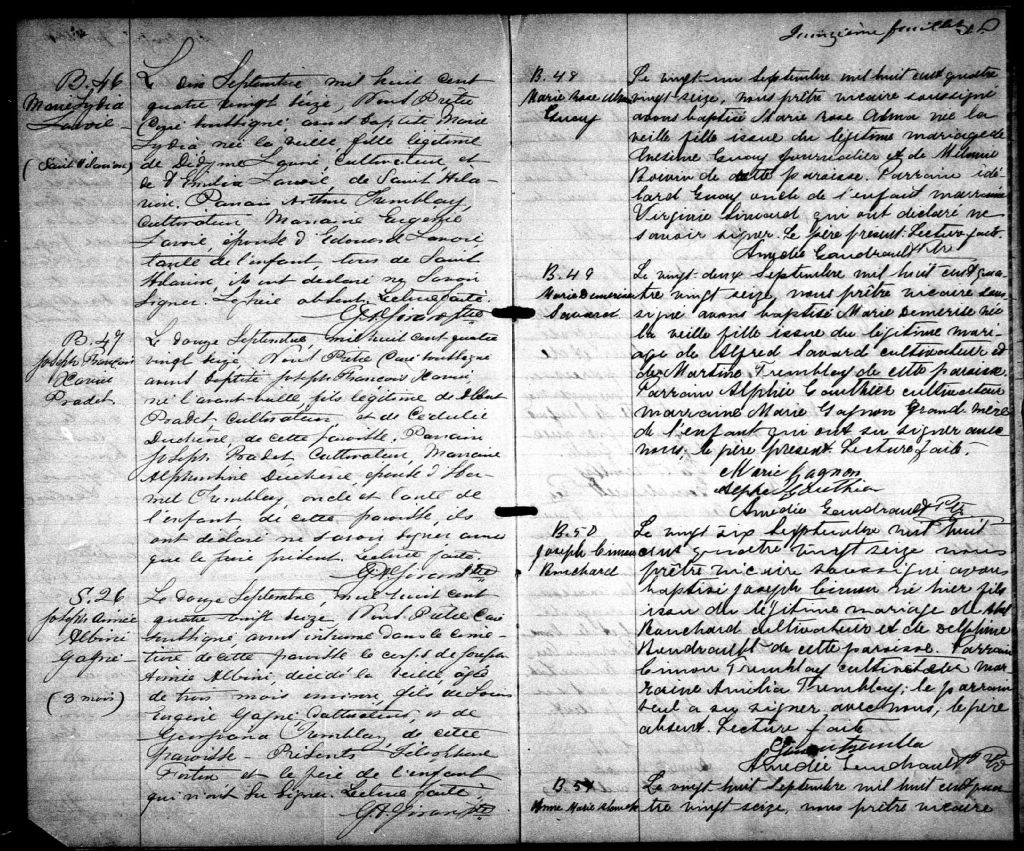 B. 46
Marie Lydia
Lavoie
(Saint Hilarion)
Le dix Septembre mil huit cent
quatre vingt seize, Nous Prêtre
Curé soussigné avons baptisé Marie
Lydia, née la veille, fille légitime
de Didyme Lavoie, Cultivateur et
de Emilia Lavoie de Saint Hila-
rion. Parrain Arthur Tremblay,
Cultivateur Marraine Eugénie
Lavoie, épouse d'Edouard Lavoie
tante de l'enfant, tous de Saint
Hilarion, ils ont déclaré ne savoir
signer. Le père absent. Lecture faite.
Ptre
B. 47
Joseph François
Xavier
Pradet
Le douze Septembre, mil huit cent quatre
vingt seize, Nous Prêtre Curé soussigné
avons baptisé Joseph François Xavier,
né l'avant-veille, fils légitime de
Pradet, Cultivateur, et de Cédulie
Duchêne, de cette paroisse. Parrain
Joseph Pradet, Cultivateur, Marraine
Alphonsine Duchêne, épouse d'
Tremblay, oncle et tante de
l'enfant, de cette paroisse, ils
ont déclaré ne savoir signer ainsi
que le père présent. Lecture faite.
Ptre
S. 26
Joseph Aimée
Albini
Gagné
(3 mois)
Le douze Septembre, mil huit cent
quatre vingt seize, Nous Prêtre Curé
soussigné avons inhumé dans le cime-
tière de cette paroisse le corps de Joseph
Aimée Albini, décédé la veille, âgé
de trois mois environ, fils de Louis
Eugène Gagné, Cultivateur, et de
Georgiana Tremblay de cette
paroisse. Présents Télesphore
Fortin et le père de l'enfant
qui n'ont su signer. Lecture faite
Ptre
Quinzième feuillet
B. 48
Marie Rose Alma
Guay
Le vingt-un Septembre mil huit cent quatre
vingt seize, nous prêtre vicaire soussigné
avons baptisé Marie Rose Alma née la
veille fille issue du légitime mariage de
Onésime Guay journalier et de Mélanie
Boivin de cette paroisse. Parrain Idé-
lard Guay oncle de l'enfant marraine
Virginie Simard qui ont déclaré ne
savoir signer. Le père présent. Lecture faite.
Amédée Gaudreault Ptr
B. 49
Marie Demerise
Savard
Le vingt-deux Septembre mil huit cent qua-
tre vingt seize, nous prêtre vicaire sous-
signé avons baptisé Marie Demerise née
la veille fille issue du légitime mari-
age de Alfred Savard cultivateur et
de Martine Tremblay de cette paroisse.
Parrain Alphée Gauthier cultivateur
marraine Marie Gagnon Grand mère
de l'enfant qui ont su signer avec
nous, le père présent. Lecture faite.
Marie Gagnon
Alphé Gauthier
Amédée Gaudreault Ptr
B. 50
Joseph Cimon
Bouchard
Le vingt six Septembre mil huit
cent quatre vingt seize nous
prêtre vicaire soussigné avons
baptisé Joseph Cimon né hier fils
issu du légitime mariage de Abel
Bouchard cultivateur et de Delphine
Boudreault de cette paroisse. Parrain
Cimon Tremblay cultivateur mar-
raine Amilia Tremblay; le parrain
seul a su signer avec nous, le père
absent. Lecture faite
Tremblay
Amédée Gaudreault Ptr
B. 51
Anne Marie Blanche
Le vingt-huit Septembre mil huit cent qua-
tre vingt seize, nous prêtre vicaire